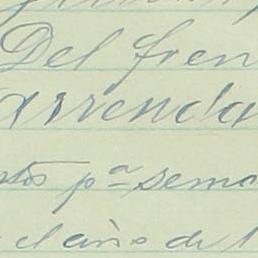 Del fren
arrenda
stos pª sema
el año de l